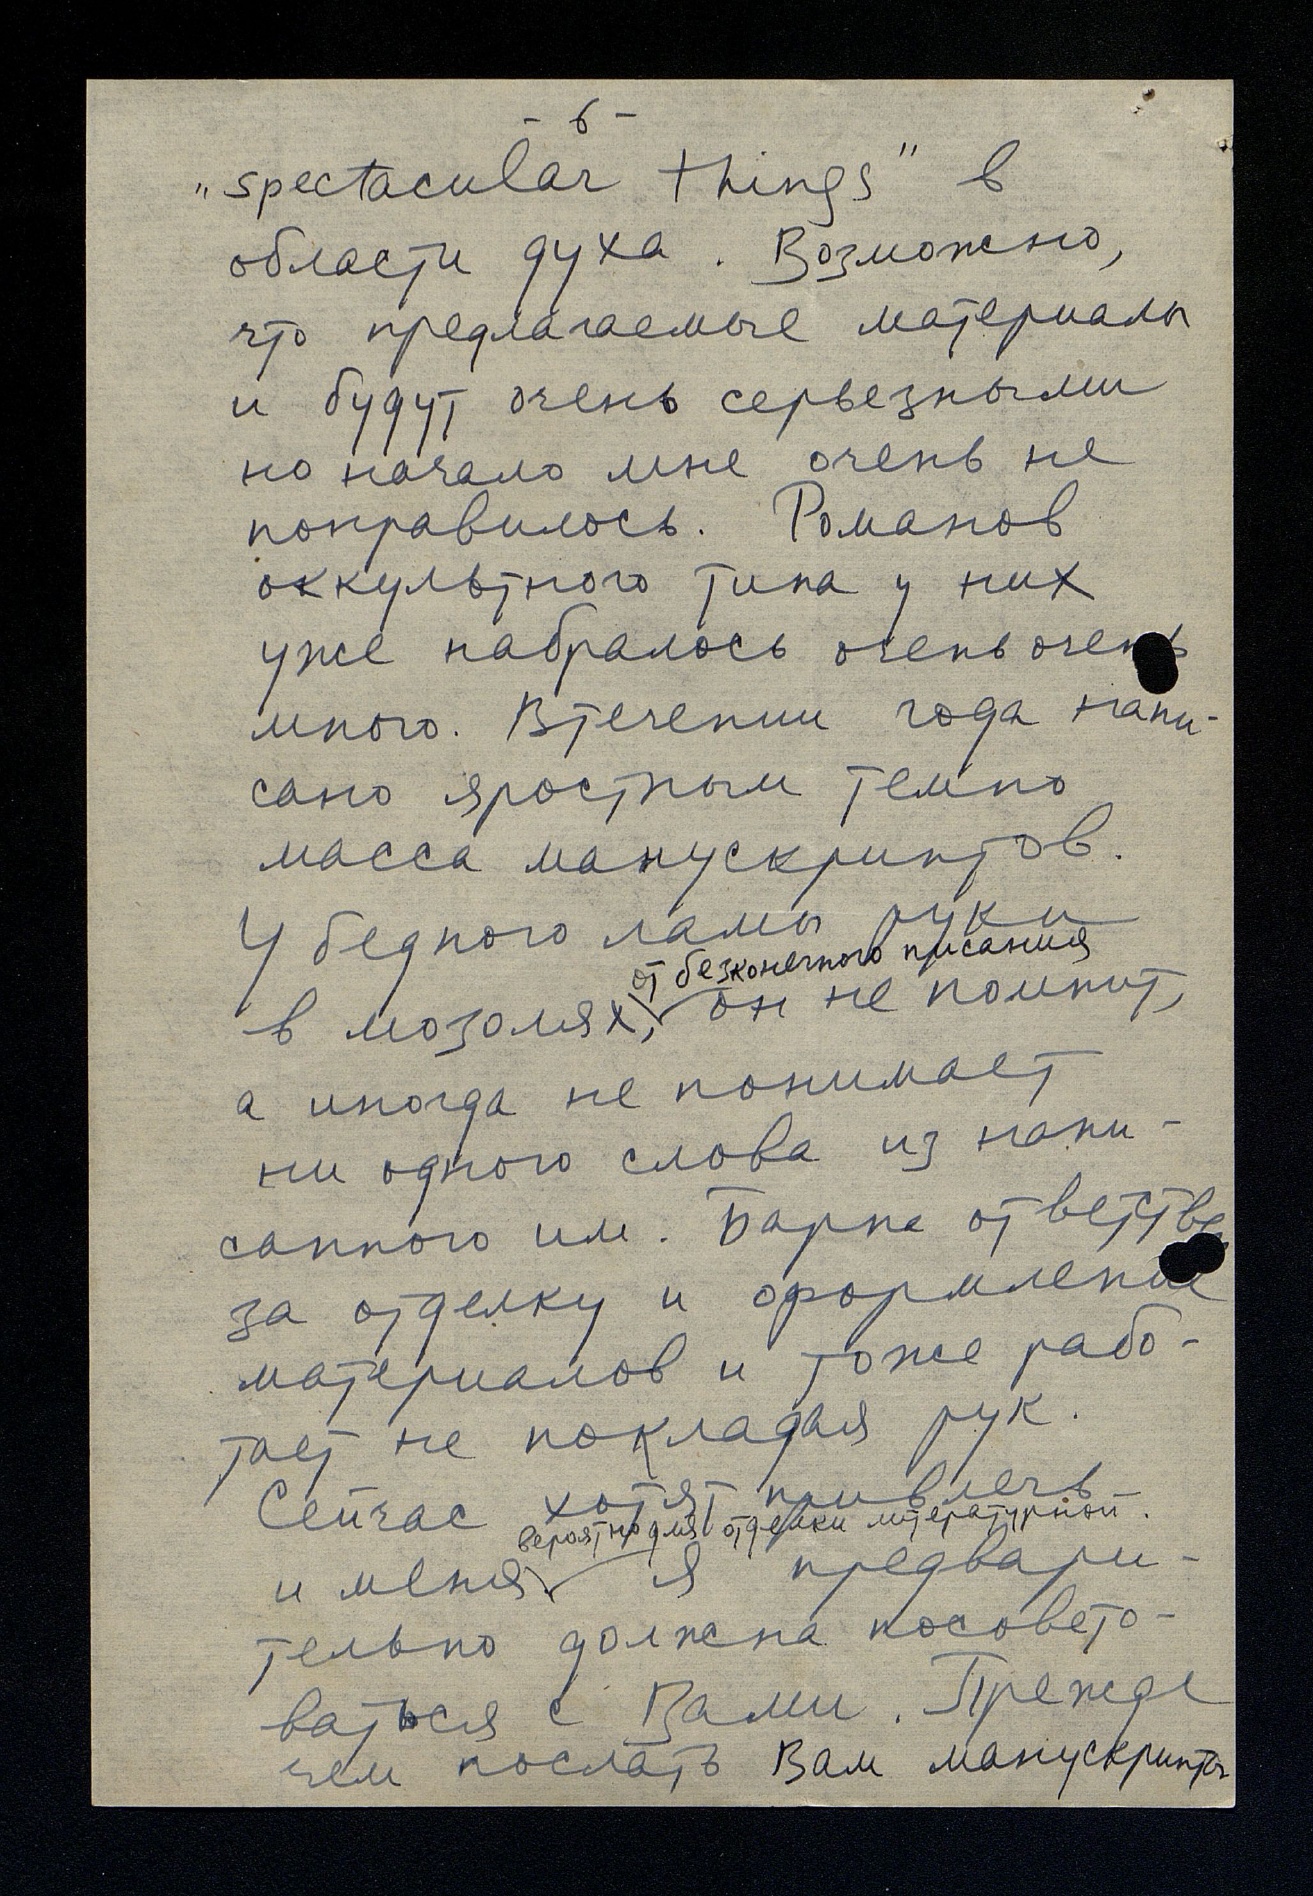 - 6 -
„spectacular things” в
области духа. Возможно,
что предлагаемые материалы
и будут очень серьезными
но начало мне очень не
понравилось. Романов
оккультного типа у них
уже набралось очень очень
много. Втечении года напи-
сано яростным темпо
масса манускриптов.
У бедного ламы руки
от безконечного писания
в мозолях, он не помнит,
а иногда не понимает
ни одного слова из напи-
санного им.
за отделку и оформление
материалов и тоже рабо-
тает не покладая рук.
Сейчас хотят привлечь
вероятно для отделки литературной.
и меня я предвари-
тельно должна посовето-
ваться с Вами. Прежде
чем послать Вам манускрипты